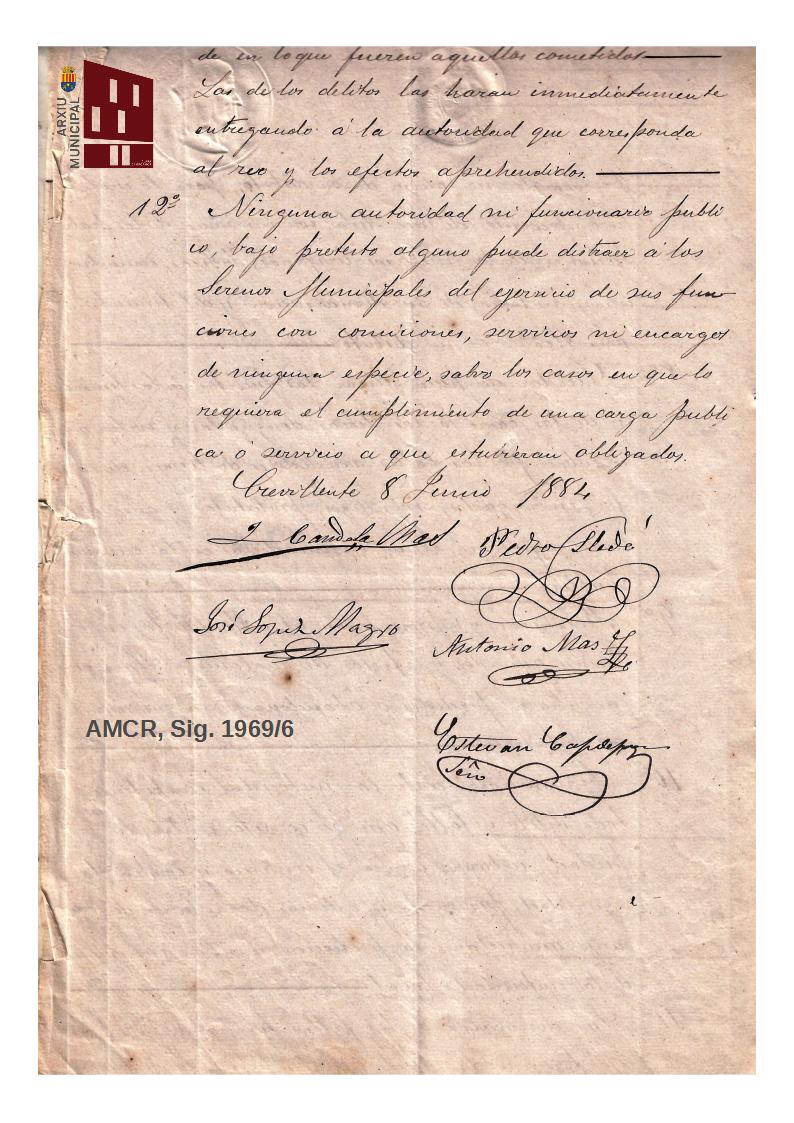 ARXIU
MUNICIPAL
de en loque fueren aquellos cometidos
Las de los delitos las haran inmediatamente
entregando á la autoridad que corresponda
al reo y los efectos aprehendidos.
12º Ninguna autoridad ni funcionario publi
co, bajo pretesto alguno puede distraer á los
Serenos Municipales del ejercicio de sus fun
ciones con comiciones, servicios ni encargos
de ninguna especie, salvo los casos en que lo
requiera el cumplimiento de una carga publi
ca ó servicio a que estubieran obligados.
Crevillente 8 Junio 1884
Candela Mas
Pedro
José Lopez Magro
Antonio Mas
AMCR, Sig. 1969/6
Estevan
Srio